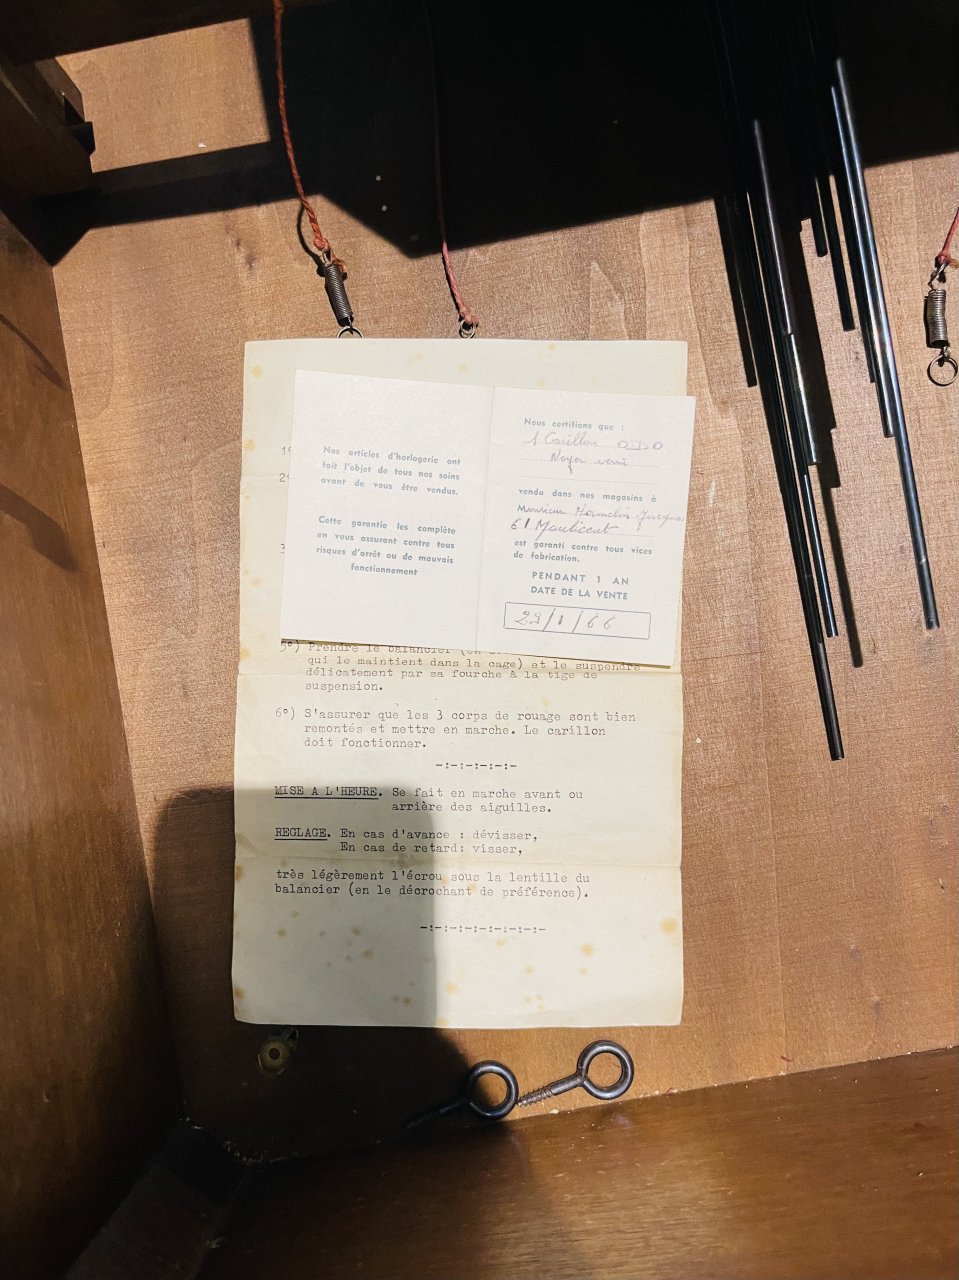 Nos articles d'horlogerie ont
fait l'objet de tous nos soins
avant de vous être vendus.
Cette garantie les complète
en vous assurant contre tous
risques d'arrêt ou de mauvais
fonctionnement
Nous certifions que :
1 Carillon ODO
Noyer verni
vendu dans nos magasins à
Monsieur
61
est garanti contre tous vices
de fabrication.
PENDANT 1 AN
DATE DE LA VENTE
/1/66
5°) Prendre le balancier (en
qui le maintient dans la cage) et le suspendre
délicatement par sa fourche à la tige de
suspension.
6°) S'assurer que les 3 corps de rouage sont bien
remontés et mettre en marche. Le carillon
doit fonctionner.
-:-:-:-:-:-
MISE A L'HEURE. Se fait en marche avant ou
arrière des aiguilles.
REGLAGE. En cas d'avance : dévisser,
En cas de retard: visser,
très légèrement l'écrou sous la lentille du
balancier (en le décrochant de préférence).
-:-:-:-:-:-:-:-:-